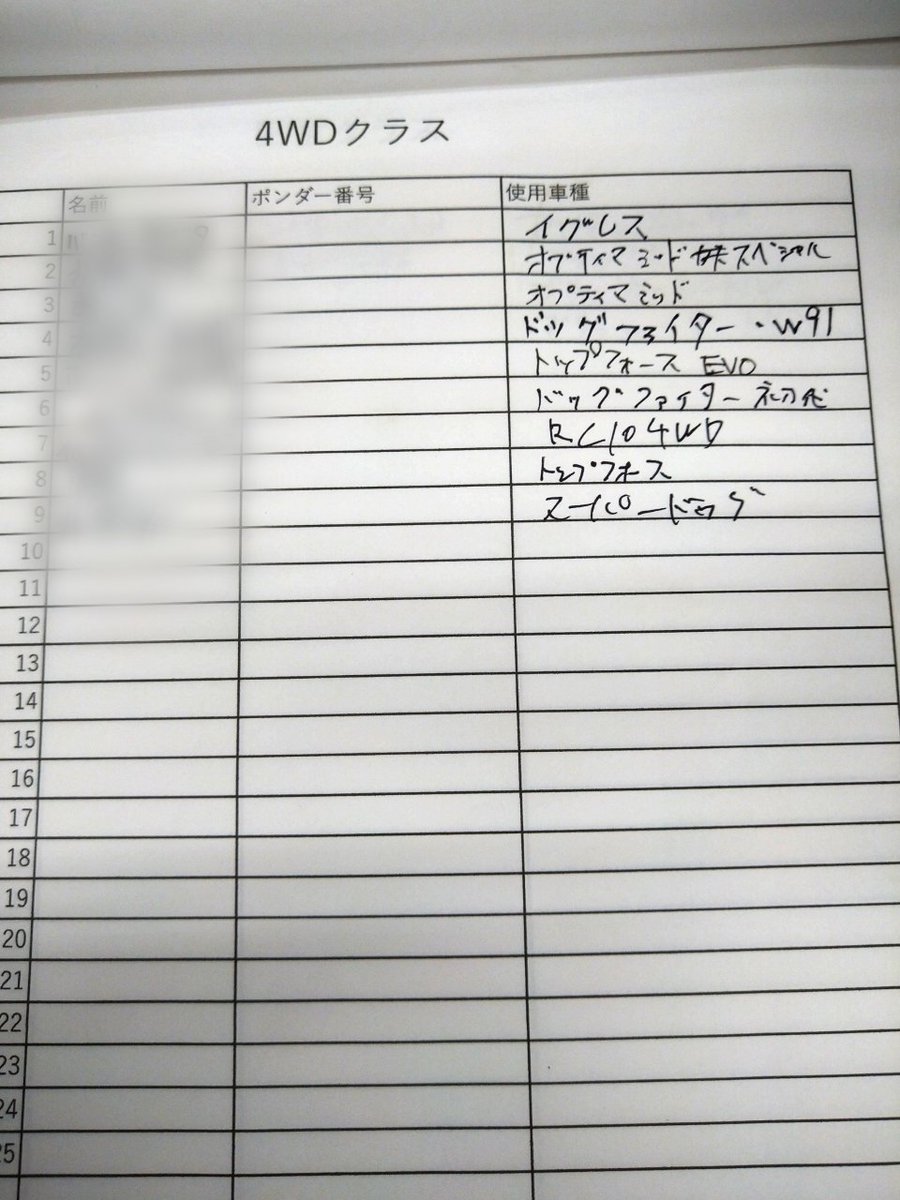 4WDクラス
名前 ポンダー番号 使用車種
1 イグレス
2 オプティマミッド 妹スペシャル
3 オプティマミッド
4 ドッグファイター・W91
5 トップフォース EVO
6 ドッグファイター 初代
7 RC10 4WD
8 トップフォース
9 スーパードッグ
10
11
12
13
14
15
16
17
18
19
20
21
22
23
24
25